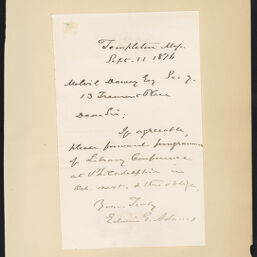 Templeton Mass.
Sept. 11 1876
Melvil Dewey Esq. Sec'y.
13 Tremont Place
Dear Sir;
If agreeable,
please forward programme
of Library Conference
at Philadelphia in
Oct. next, & then oblige,
Yours Truly
Edwin G. Adams